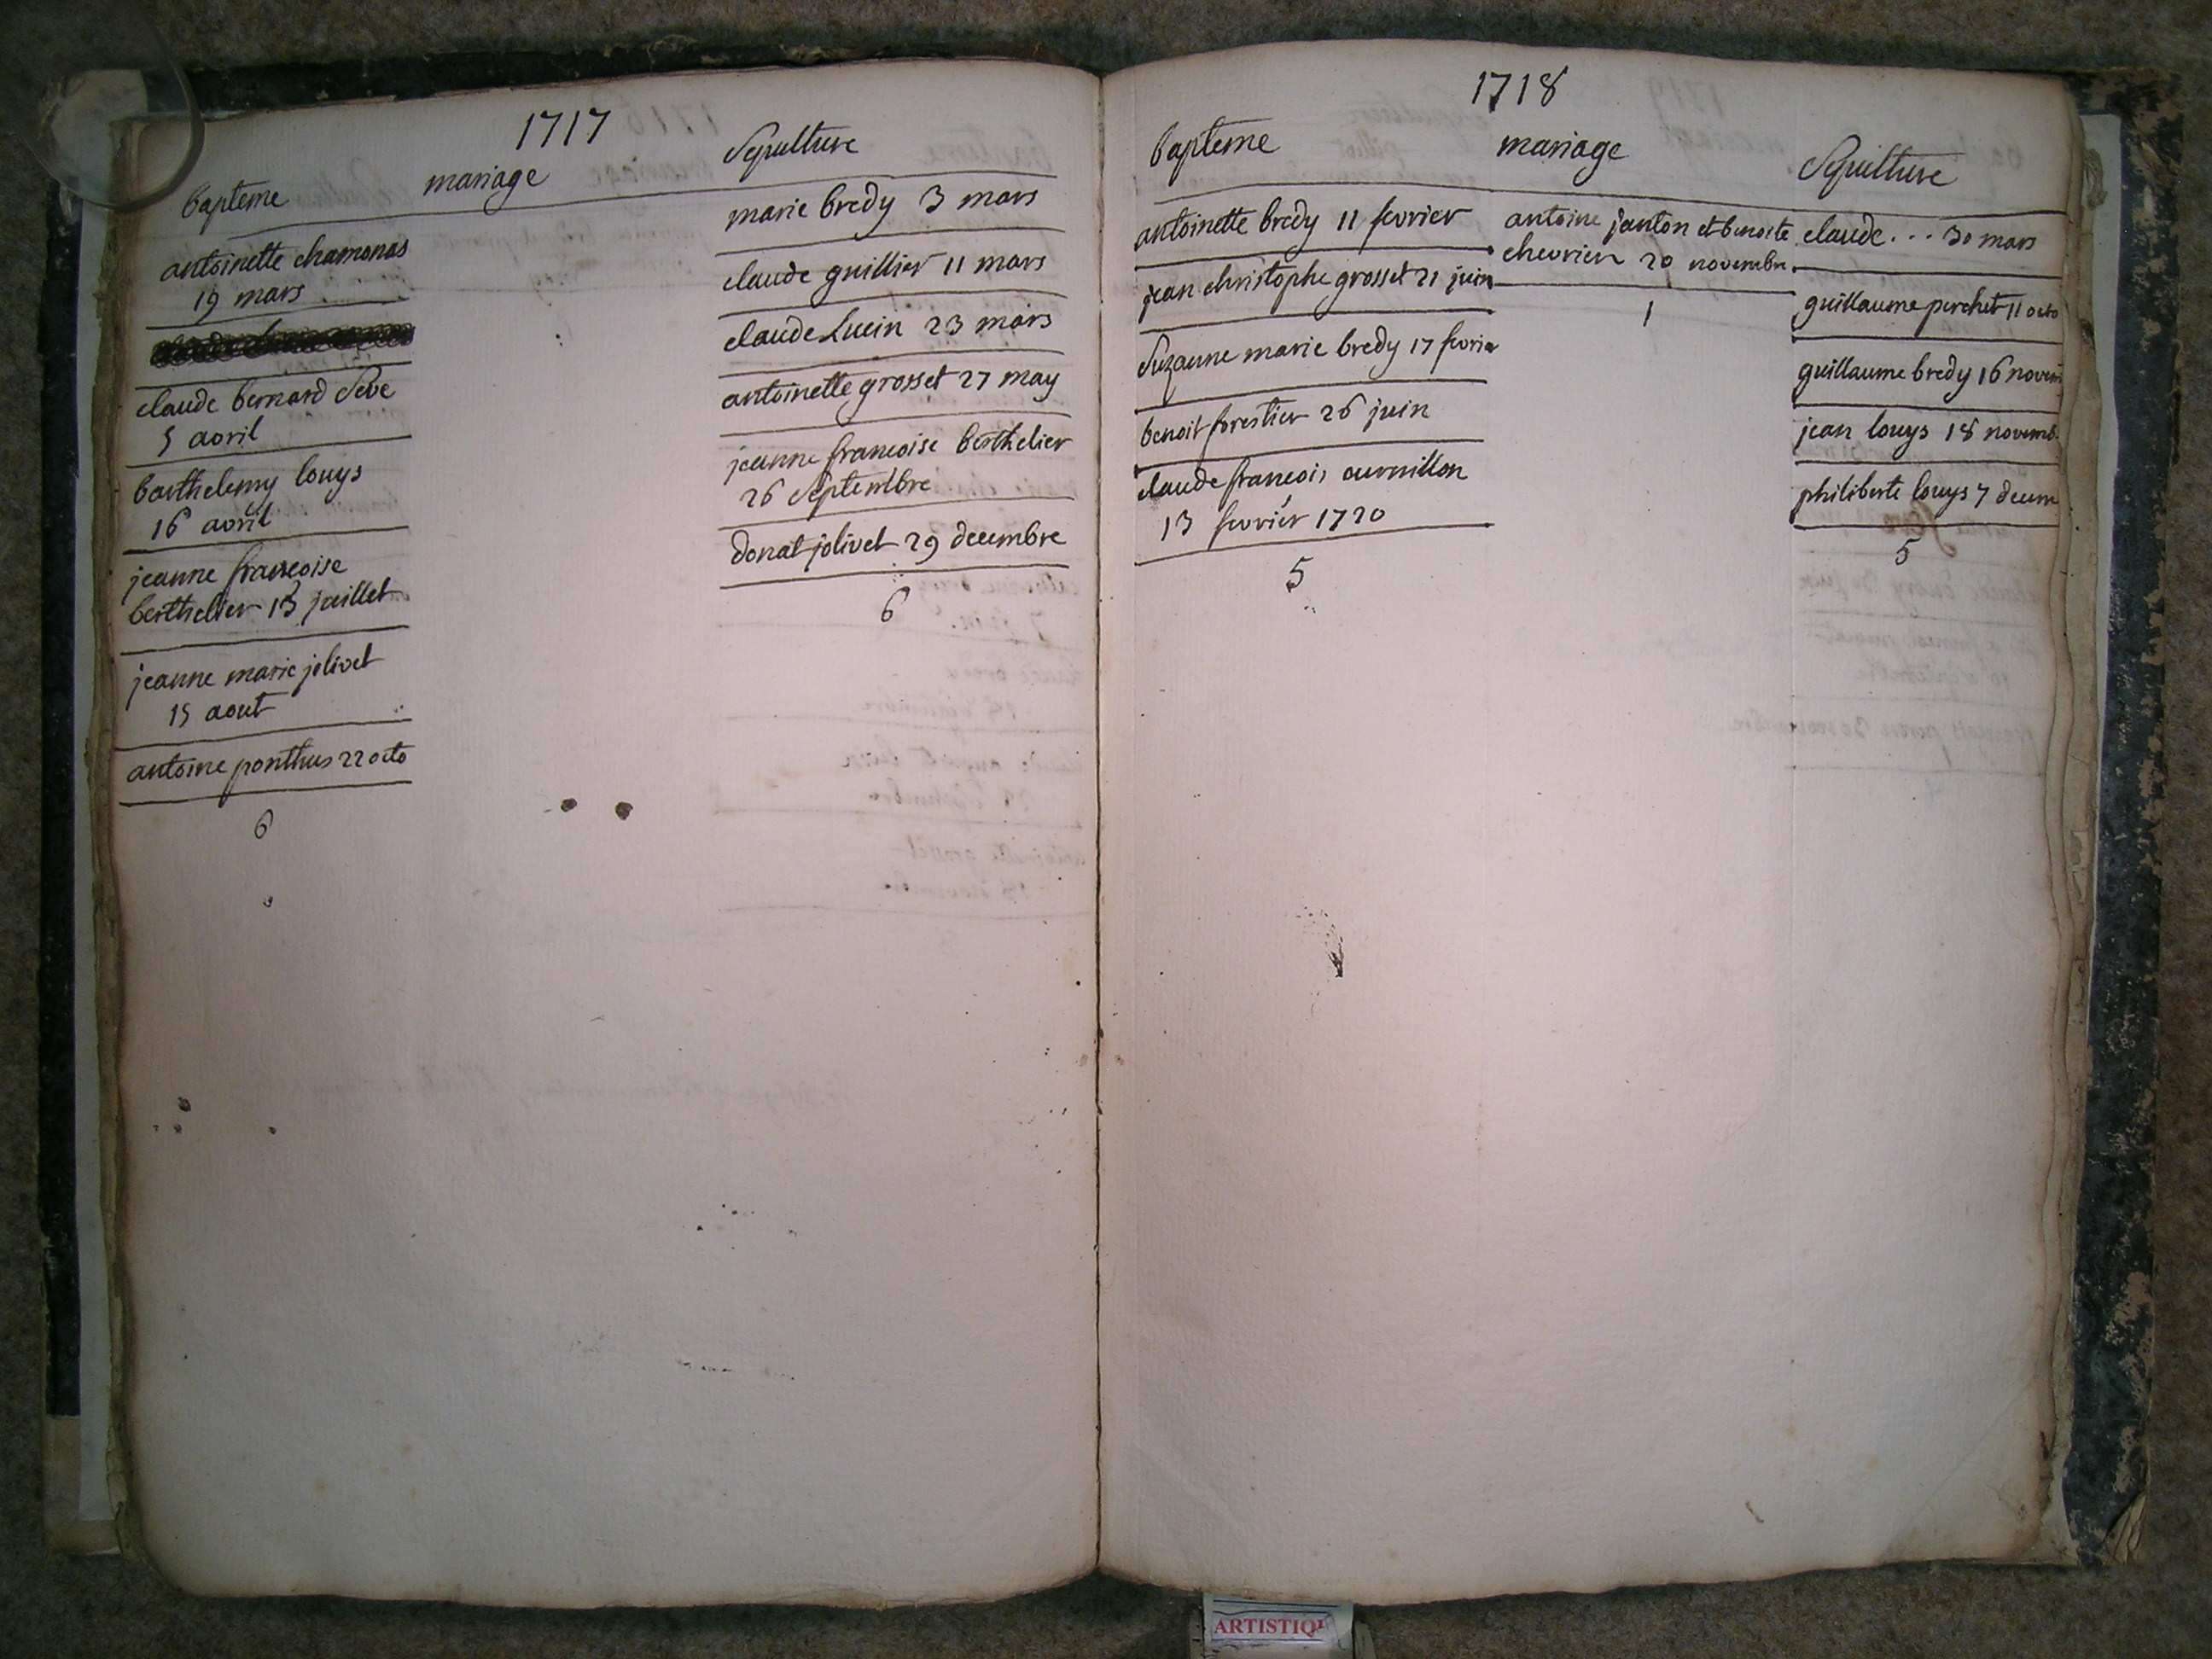 1717
bapteme
mariage
Sepulture
antoinette chamonas
19 mars
claude bernard Seve
5 avril
barthelemy louys
16 avril
jeanne francoise
berthelier 13 juillet
jeanne marie jolivet
15 aout
antoine ponthus 22 octo
6
marie bredy 3 mars
claude guillier 11 mars
claude Lucin 23 mars
antoinette grosset 27 may
jeanne francoise berthelier
26 Septembre
donat jolivet 29 decembre
6
1718
bapteme
mariage
Sepulture
antoinette bredy 11 fevrier
jean christophe grosset 21 juin
Suzanne marie bredy 17 fevrier
benoit forestier 26 juin
claude francois
13 fevrier 1720
5
antoine janton et benoite
chevrier 20 novembre
1
claude . . . 30 mars
guillaume perchet 11 octo
guillaume bredy 16 novem
jean louys 18 novemb
philiberte louys 7 decem
5
ARTISTIQ